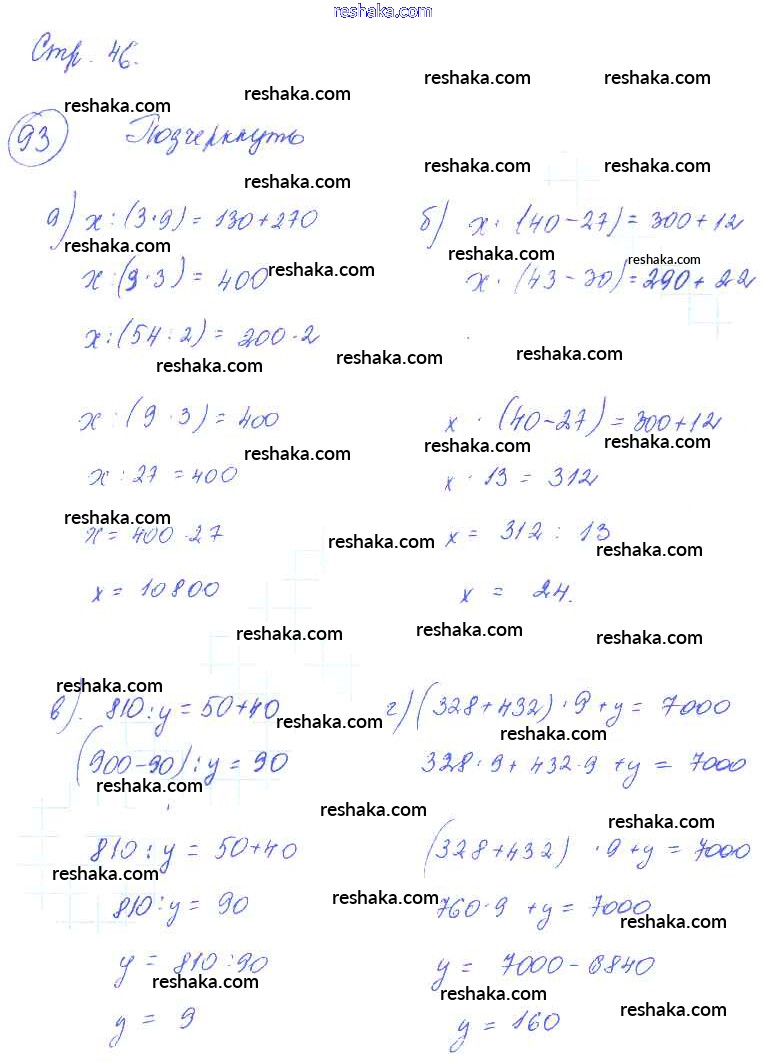 reshaka.com
Стр. 46.
reshaka.com reshaka.com
reshaka.com reshaka.com
93 Подчеркнуть
reshaka.com reshaka.com
reshaka.com
а) x:(3·9)=130+270
б) x·(40-27)=300+12
reshaka.com reshaka.com reshaka.com
x:(9·3)=400 reshaka.com
x·(43-30)=290+22
x:(54:2)=200·2
reshaka.com reshaka.com reshaka.com
x:(9·3)=400
x·(40-27)=300+12
reshaka.com reshaka.com reshaka.com
x:27=400
x·13=312
reshaka.com
x=400·27 reshaka.com
x=312:13 reshaka.com
x=10800
x=24.
reshaka.com reshaka.com reshaka.com
reshaka.com
в). 810:y=50+40 reshaka.com
г)(328+432)·9+y=7000
reshaka.com
(900-90):y=90
328·9+432·9+y=7000
reshaka.com
reshaka.com reshaka.com
810:y=50+40
(328+432)·9+y=7000
reshaka.com
810:y=90 reshaka.com
760·9+y=7000
reshaka.com
y=810:90
y=7000-6840
reshaka.com reshaka.com
y=9
y=160 reshaka.com